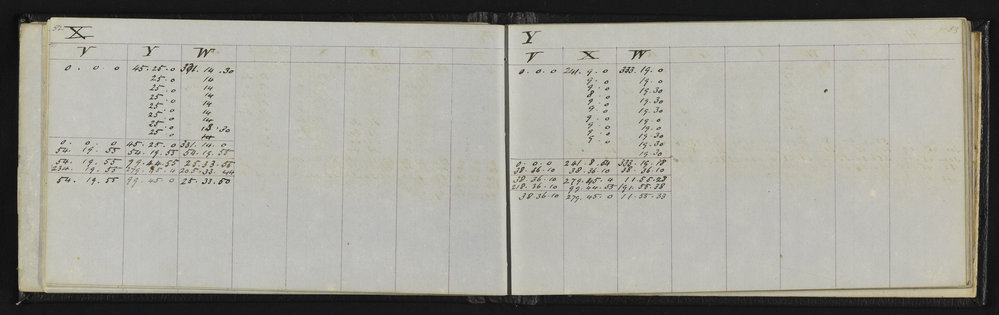 52
X
V Y W
0. 0. 0 45. 25. 0 331. 14. 30
25. 0 14
25. 0 14
25. 0 14
25. 0 14
25. 0 14
25. 0 14
25. 0 14
25. 0 13. 30
0. 0. 0 45. 25. 0 331. 14. 0
54. 19. 55 54. 19. 55 54. 19. 55
54. 19. 55 99. 44. 55 25. 33. 55
234. 19. 55 279. 45. 4 205. 33. 44
54. 19. 55 99. 45. 0 25. 33. 50
53
Y
V X W
0. 0. 0 241. 9. 0 333. 19. 0
9. 0 19. 0
9. 0 19. 30
8. 0 19. 30
9. 0 19. 30
9. 0 19. 30
9. 0 19. 0
9. 0 19. 0
9. 0 19. 30
9. 0 19. 30
19. 30
0. 0. 0 241. 8. 54 333. 19. 18
38. 36. 10 38. 36. 10 38. 36. 10
38. 36. 10 279. 45. 4 11. 55. 28
218. 36. 10 99. 44. 55 191. 55. 38
38. 36. 10 279. 45. 0 11. 55. 33